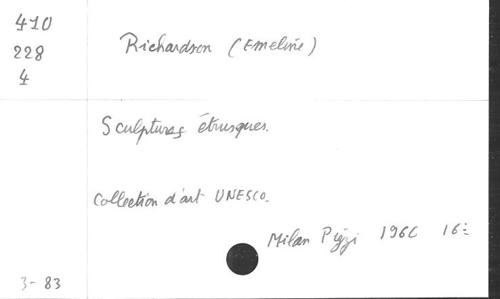 410
228
4
Richardson (Emeline)
Sculptures étrusques.
Collection d'art UNESCO.
Milan 1966 16=
3-83